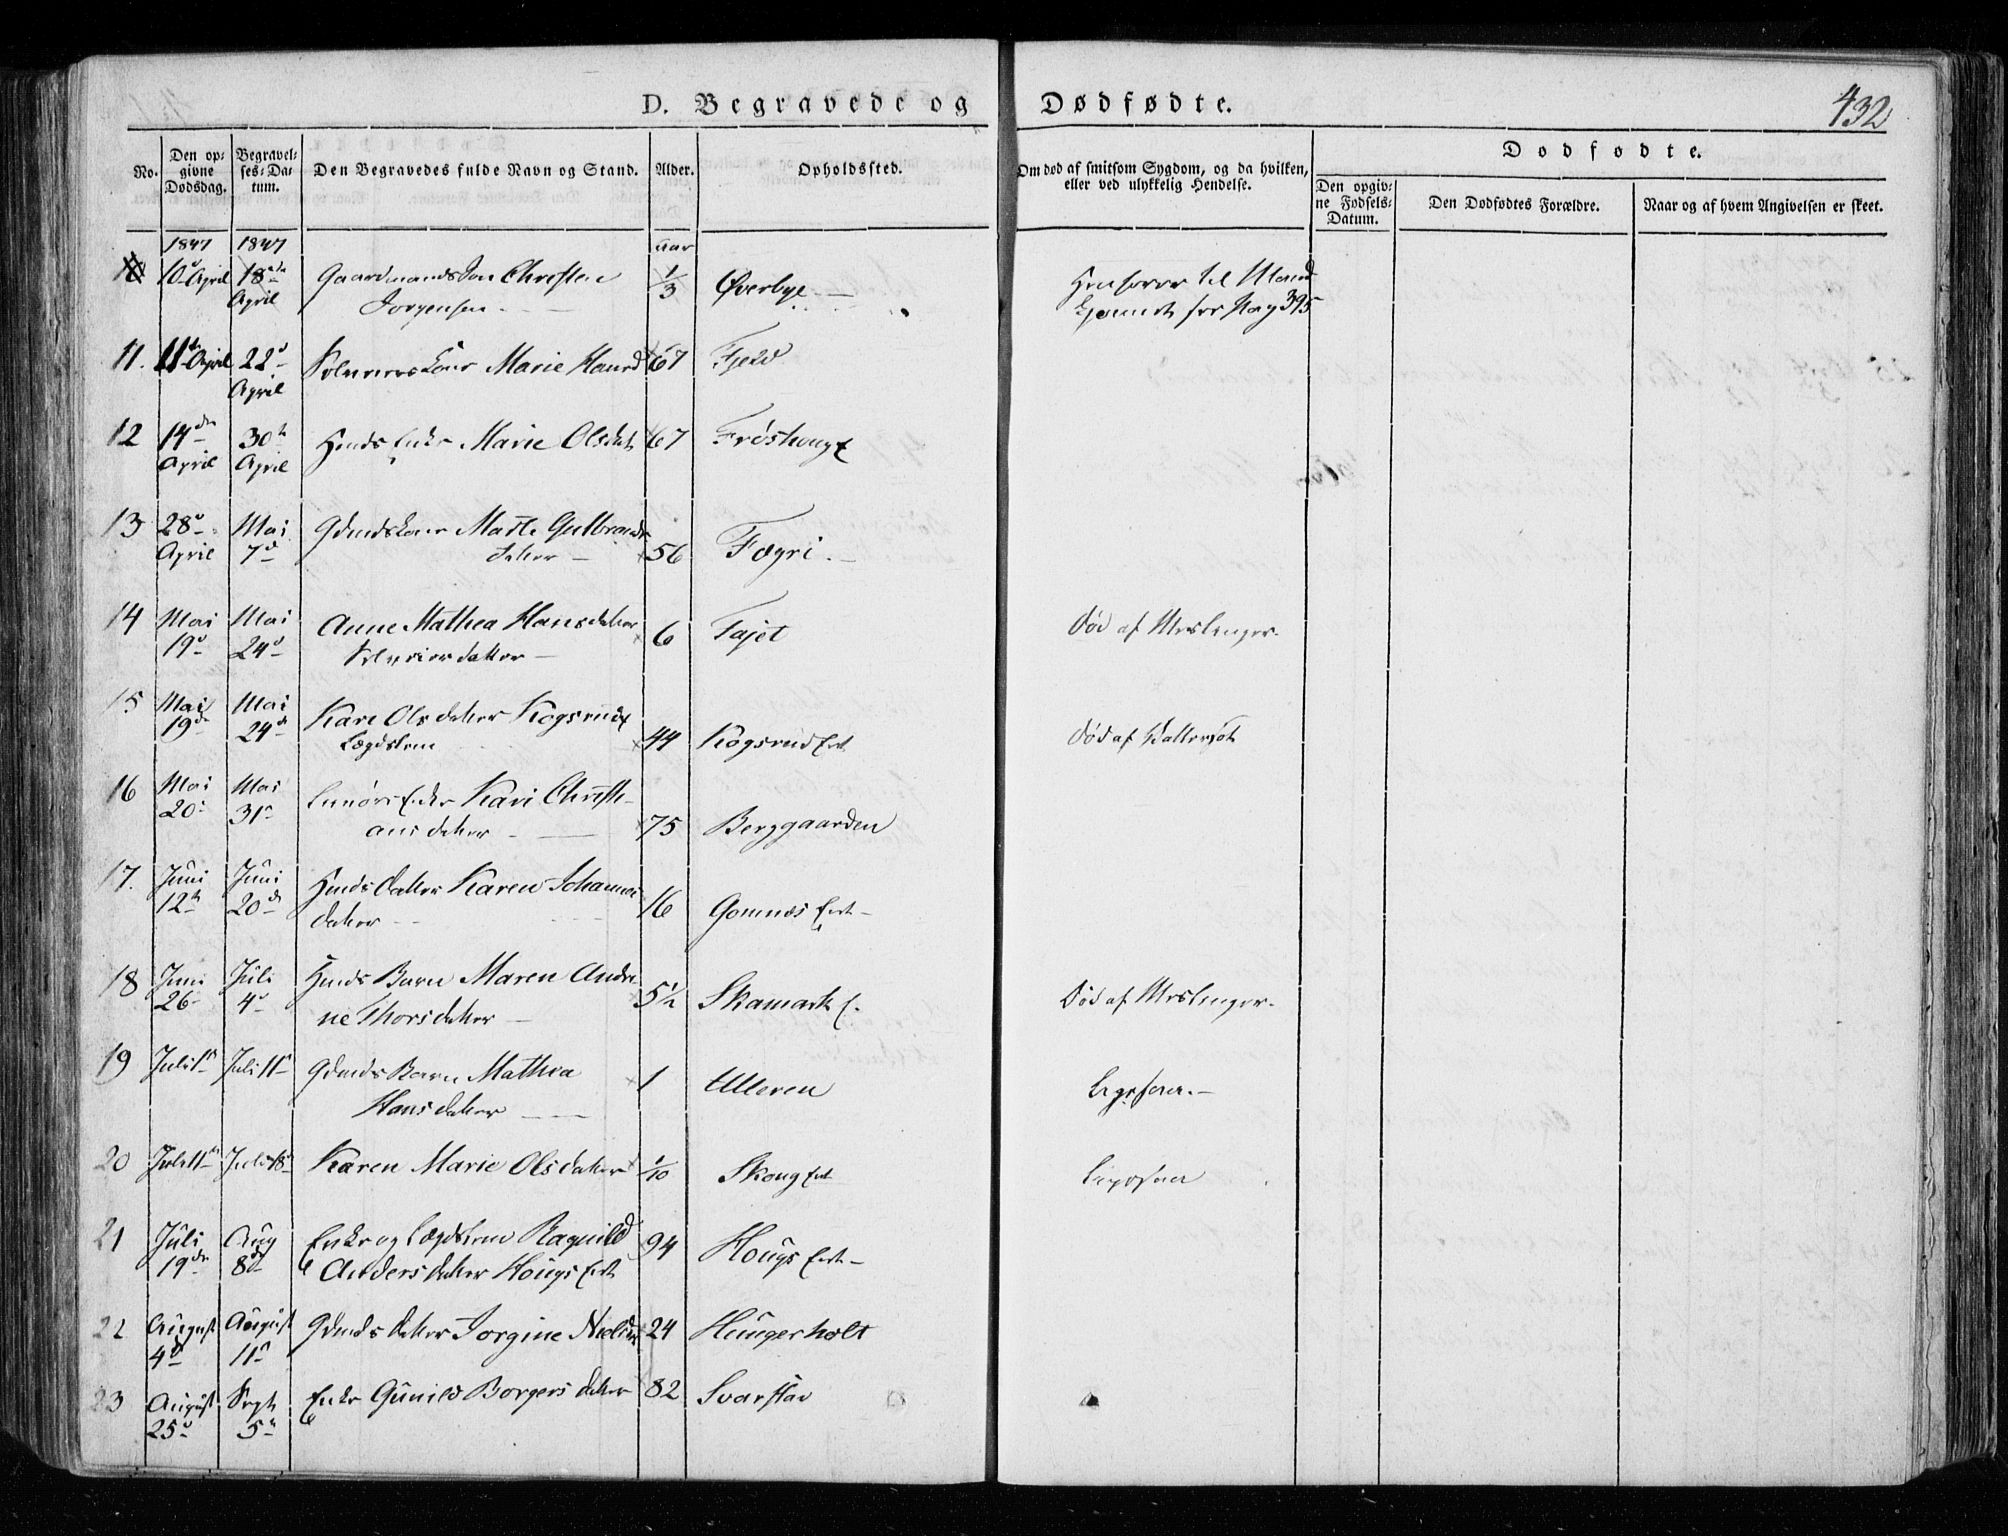 D. Begravede og Dødfødte.
432
No.
Den op-
givne
Dødsdag.
Begravel-
ses-Da-
tum.
Den Begravedes fulde Navn og Stand.
Alder.
Opholdsted.
Om død af smitsom Sygdom, og da hvilken,
eller ved ulykkelig Hendelse.
Dødfødte.
Den opgiv-
ne Fødsels-
Datum.
Den Dødfødtes Forældre.
Naar og af hvem Angivelsen er skeet.
1847 1847 aar
10 10 April 18de April Gaardmands Søn Christen
Jorgensen 1/3 Øverbye
Henfører til Mand
Kjønnet for Pag 395
11. 11te April 22d April Marie Hansd 67 Fjeld
12 14de April 30te April Hmds Enke Marie Olsdat 67 Frøshoug E
13 28d April Mai 7d Gdmdskone Marte Gulbrands
datter 56 Fægri.
14 Mai 19d Mai 24d Anne Mathea Hansdatter
datter 6 Fajet Død af Meslinger.
15 Mai 19de Mai 24d Kari Olsdatter Kogsrud
Lægdslem 44 Kogsrud Eet Død af
16 Mai 20d Mai 31te Enke Kari Christi-
ansdatter 75 Berggaarden
17. Juni 12te Juni 20de Hmds Datter Karen Johannes
datter 16 Gomnæs Eet
18 Juni 26 Juli 4d Hmds Barn Maren Andri-
ne Thorsdatter 5½ Skamark E. Død af Meslinger.
19 Juli 1te Juli 11te Gdmds Barn Mathea
Hansdatter 1 Ulleren
20 Juli 11te Juli 18de Karen Marie Olsdatter 1/10 Skoug Eet
21 Juli 19de Aug 8de Enke og Lægdslem Ragnild
Andersdatter Hougs Eet 94 Hougs Eet
22 August 4d August 11te Gdmds datter Jorgine Nielsd 24 Hungerholt
23 August 25d Sept 5te Enke Gunild Borgersdatter 82 Svarstad